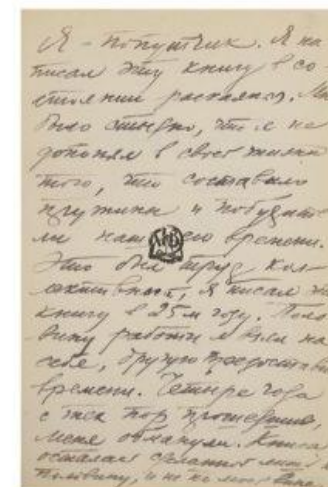 Я - попутчик. Я на
писал эту книгу в со-
стоянии раскаянья. Мне
было стыдно, что я не
допонял в своей жизни
того, что составило
пружины и побудите
ли нашего времени.
Это был труд кол-
лективный, я писал эту
книгу в 25м году. Поло
вину работы я взял на
себе, другую предоставил
времени. Четыре года
с тех пор прошедшие,
меня обманули. Книга
осталась сделанной
половину, и не по моей вине